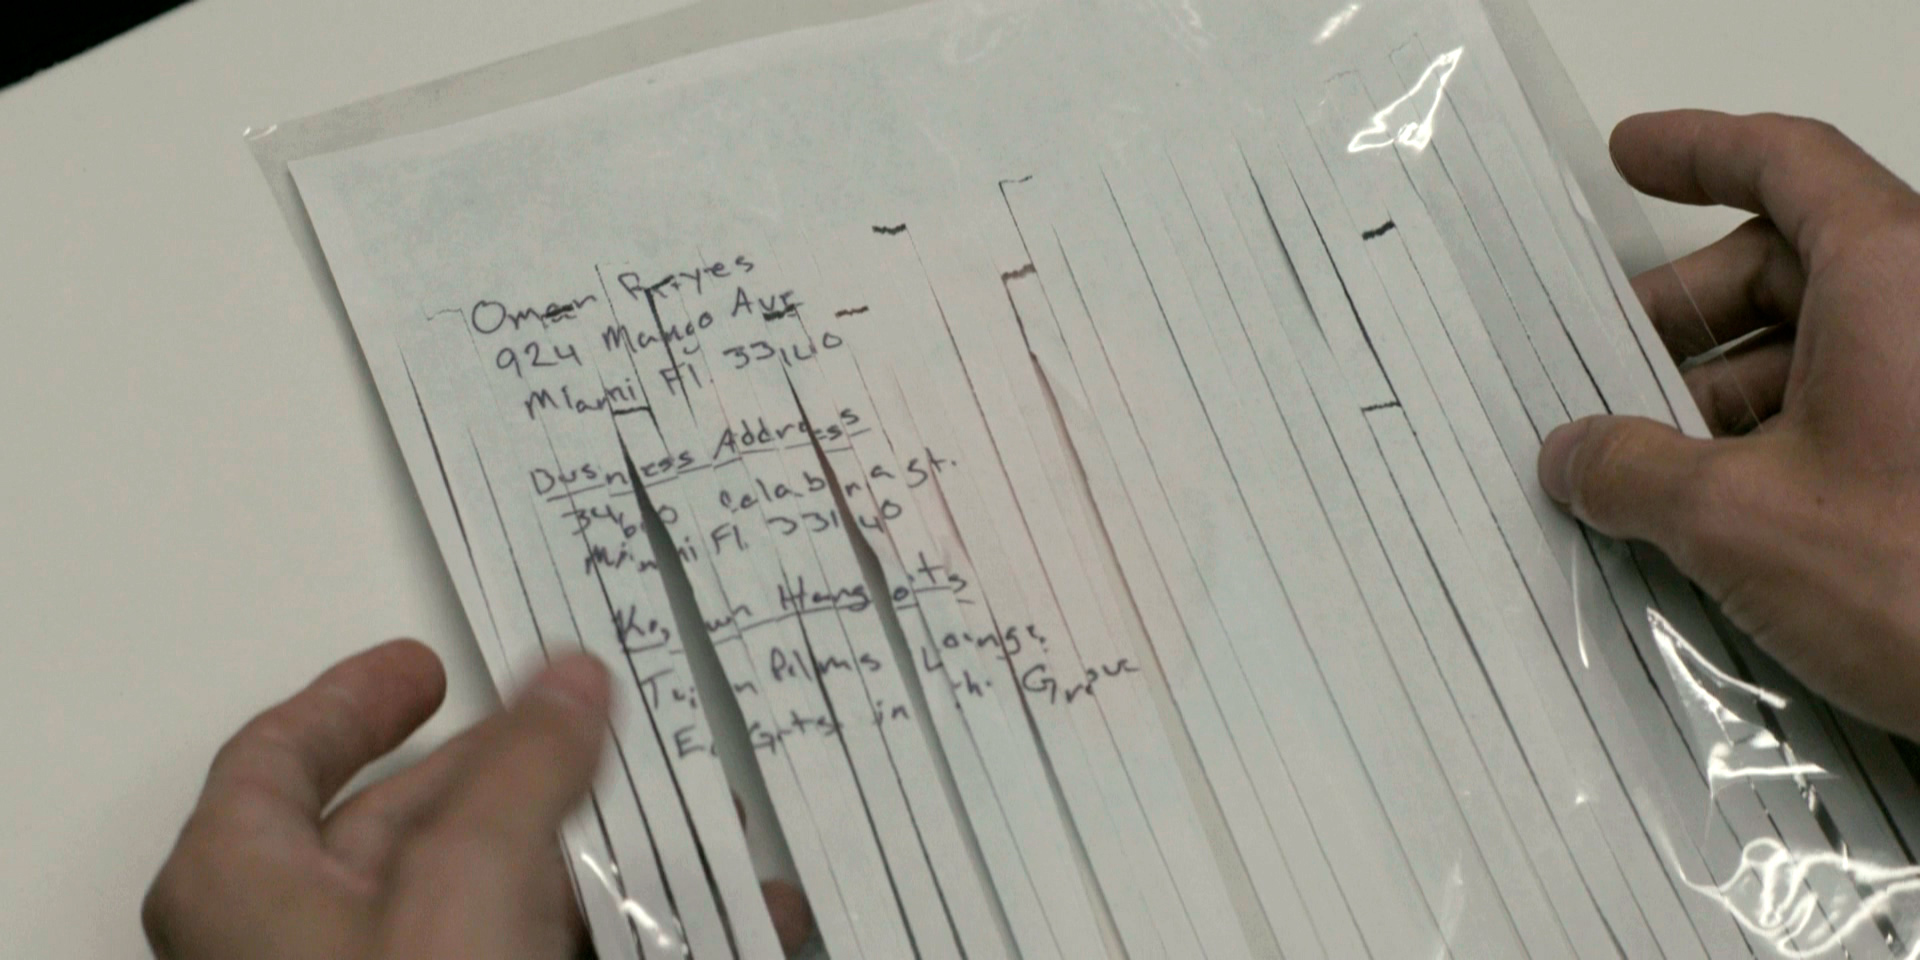 Omar Reyes
924 Mango Ave
Miami Fl. 33140
Business Address
Miami Fl. 33140
Known Hangouts
Twin Palms Lounge
in the Grove